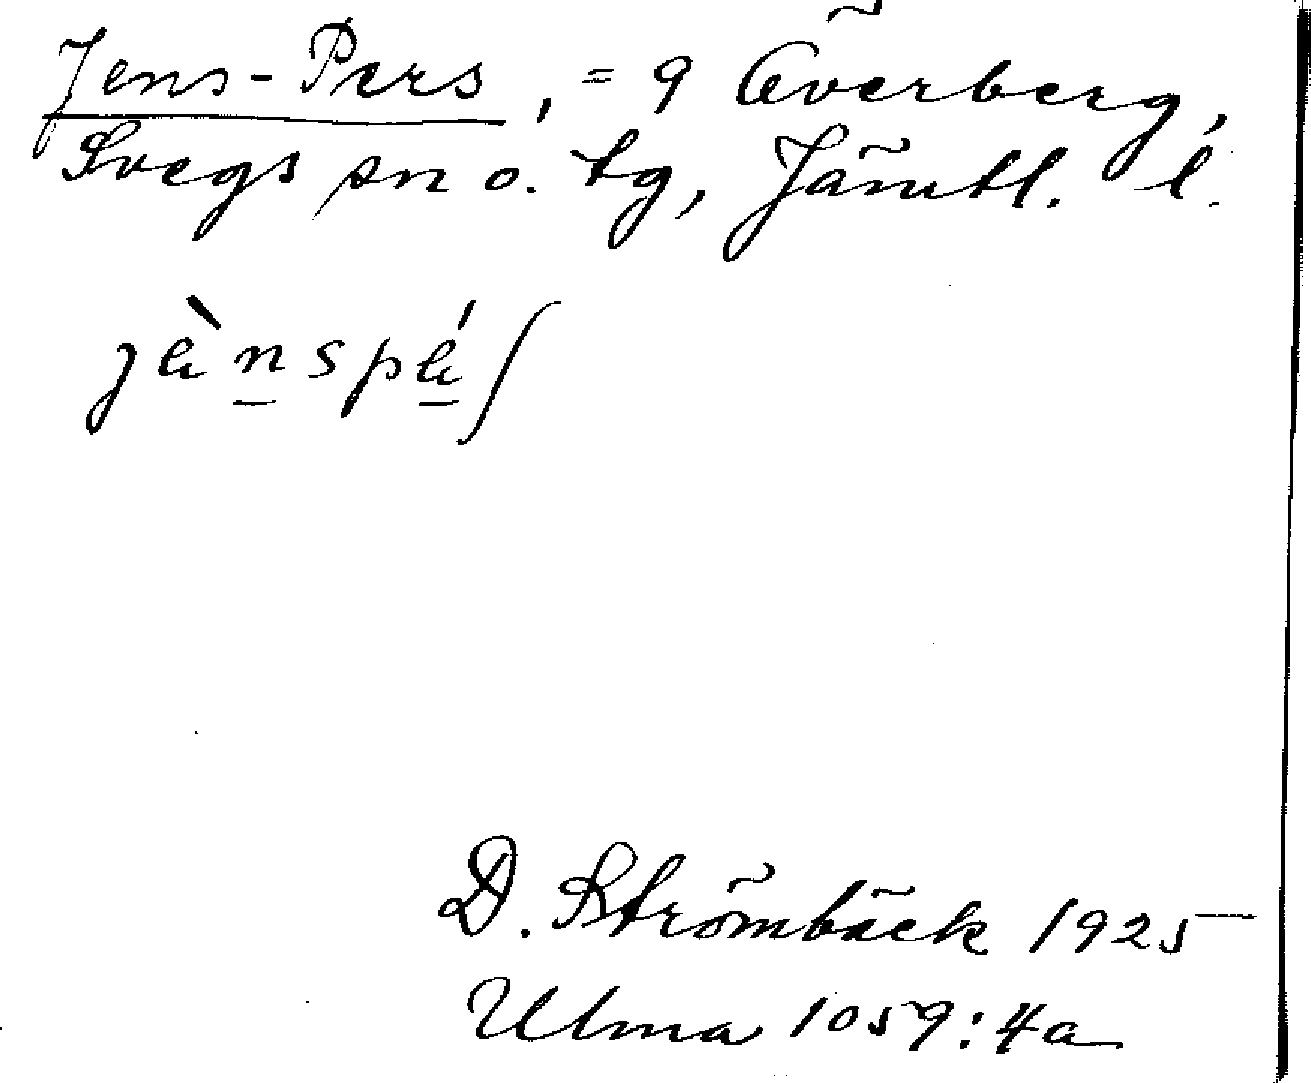 Jens-Pers, = 9 Överberg,
Svegs sn o. tg, Jämtl. l.
jæ̀n̲spǽ̲ʃ
D. Strömbäck 1925
Ulma 1059:4a